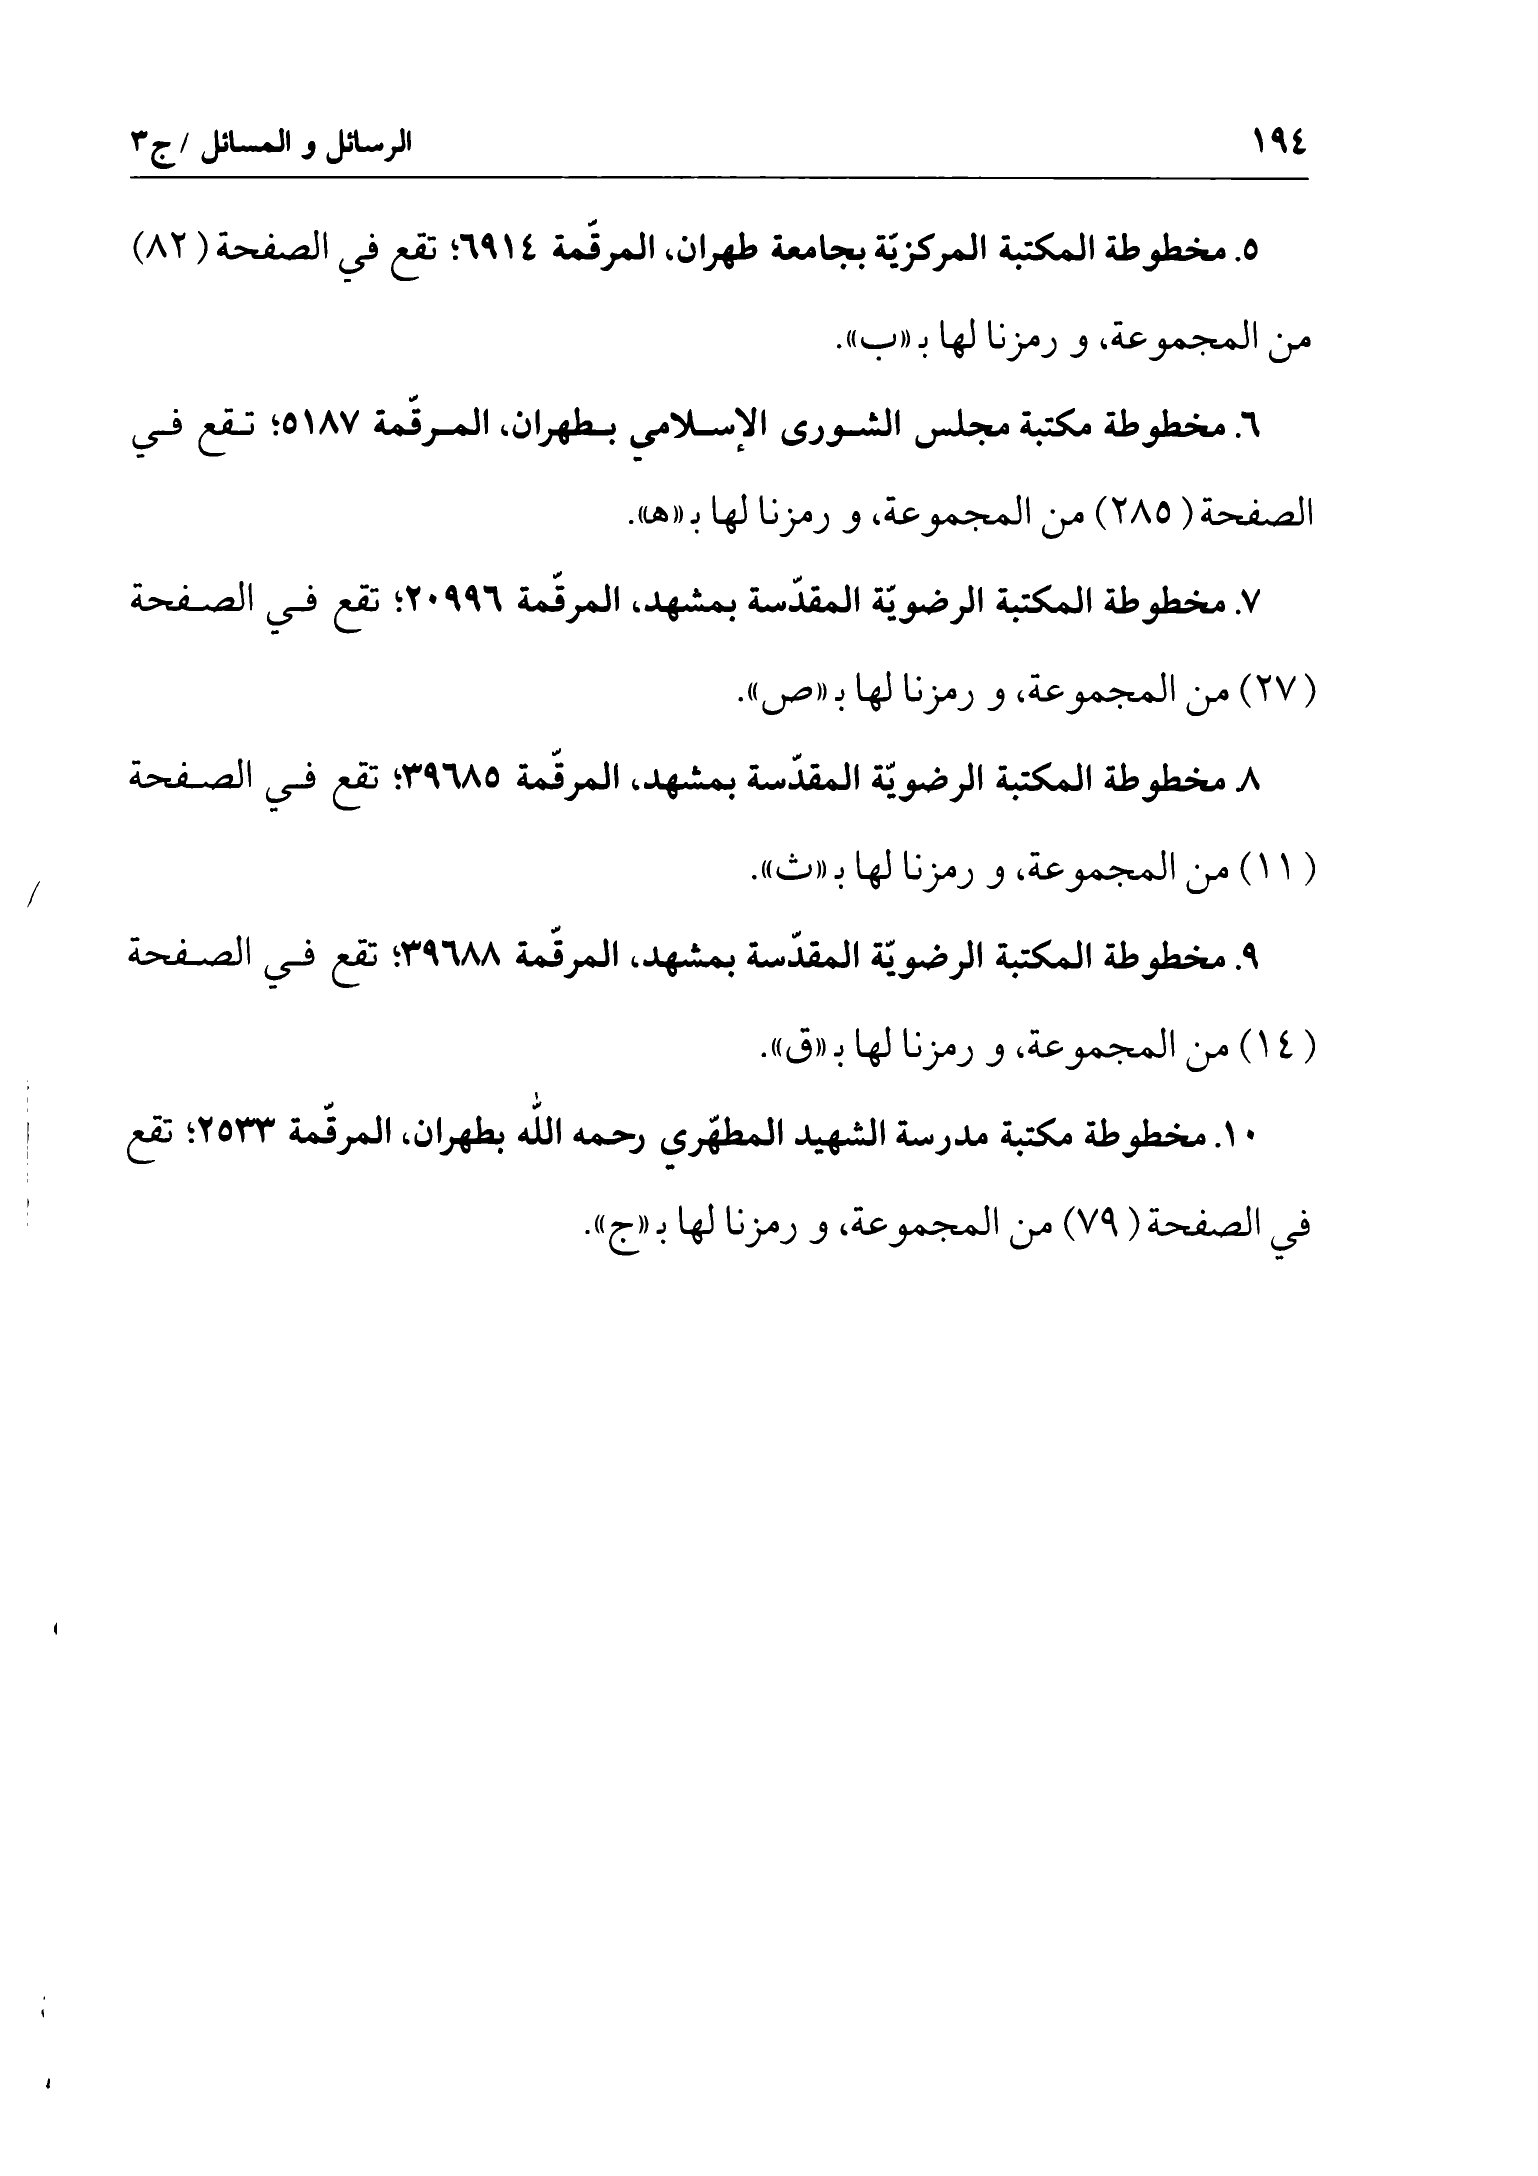 ١٩٤ الرسائل و المسائل / ج٣
٥. مخطوطة المكتبة المركزيّة بجامعة طهران، المرقّمة ٦٩١٤؛ تقع في الصفحة (٨٢)
من المجموعة، و رمزنا لها بـ«ب».
٦. مخطوطة مكتبة مجلس الشورى الإسلامي بطهران، المرقّمة ٥١٨٧؛ تقع في
الصفحة (٢٨٥) من المجموعة، و رمزنا لها بـ«ه‍».
٧. مخطوطة المكتبة الرضويّة المقدّسة بمشهد، المرقّمة ٢٠٩٩٦؛ تقع في الصفحة
(٢٧) من المجموعة، و رمزنا لها بـ«ص».
٨. مخطوطة المكتبة الرضويّة المقدّسة بمشهد، المرقّمة ٣٩٦٨٥؛ تقع في الصفحة
(١١) من المجموعة، و رمزنا لها بـ«ث».
٩. مخطوطة المكتبة الرضويّة المقدّسة بمشهد، المرقّمة ٣٩٦٨٨؛ تقع في الصفحة
(١٤) من المجموعة، و رمزنا لها بـ«ق».
١٠. مخطوطة مكتبة مدرسة الشهيد المطهّري رحمه اللّٰه بطهران، المرقّمة ٢٥٣٣؛ تقع
في الصفحة (٧٩) من المجموعة، و رمزنا لها بـ«ج».